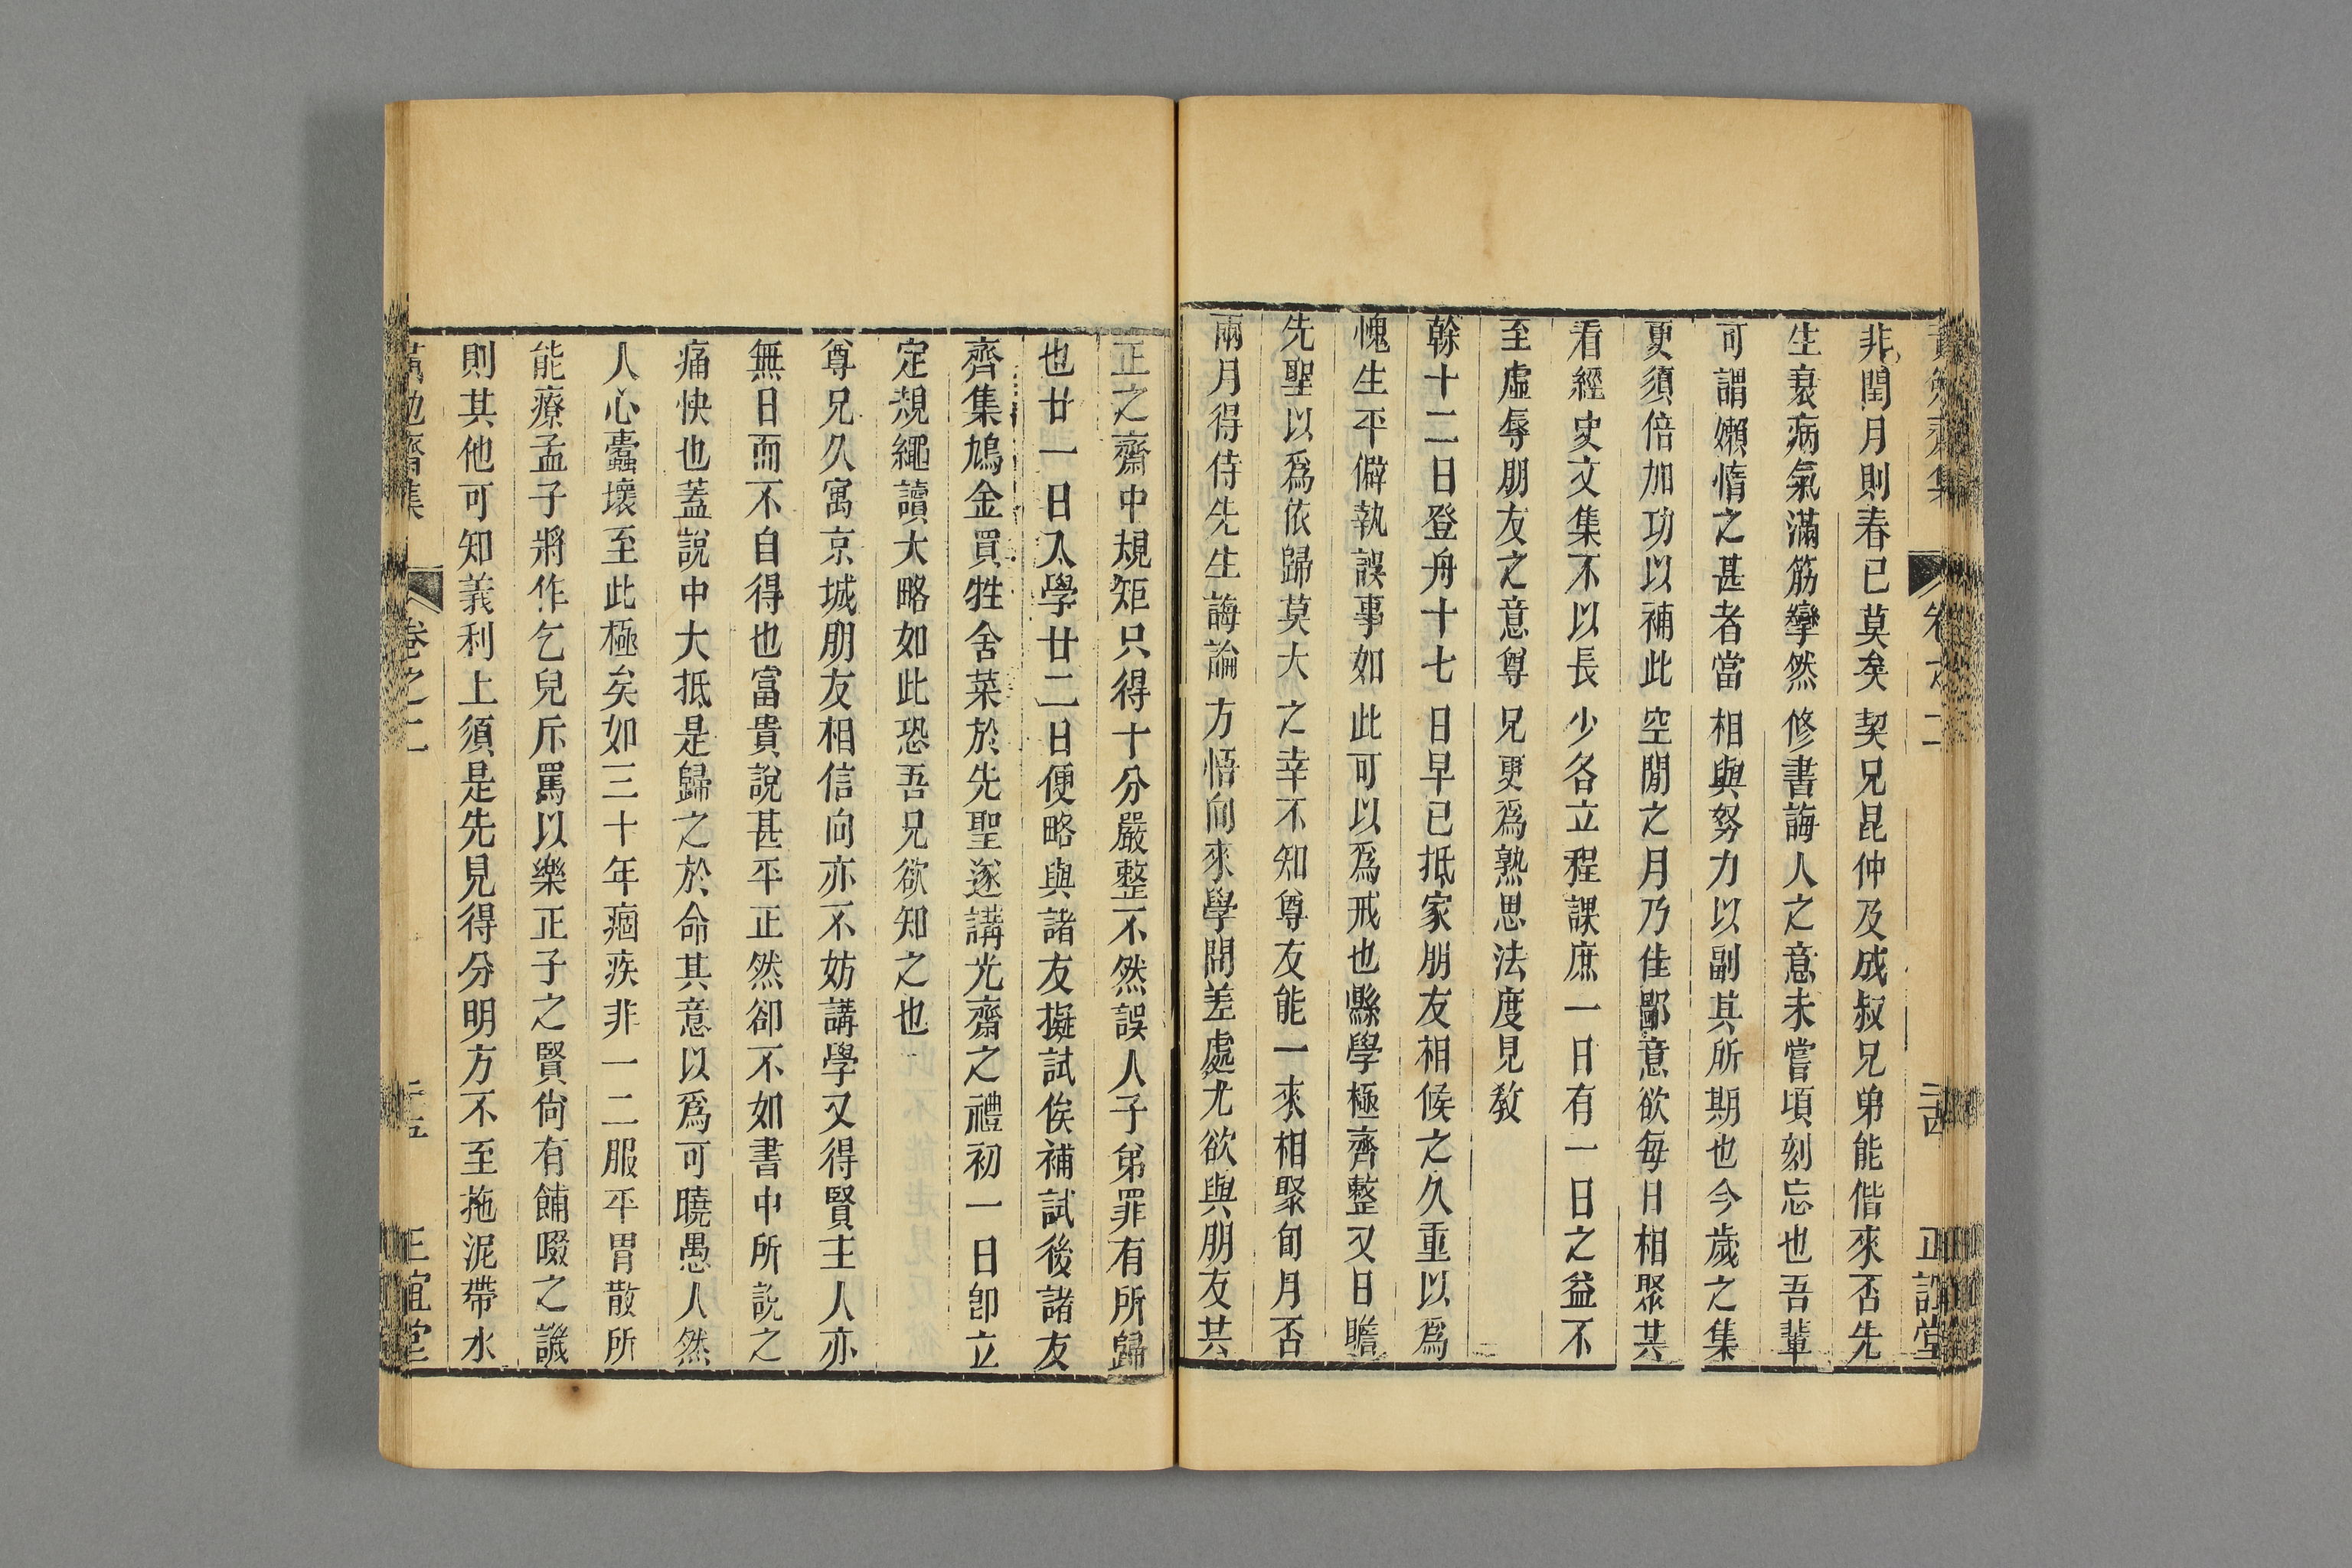 非閏月則春已莫矣契兄昆仲及成叔兄弟能偕來否先
生衰病氣滿筋攣然修書誨人之意未嘗頃刻忘也吾輩
可謂嬾惰之甚者當相與努力以副其所期也今歲之集
更須倍加功以補此空閒之月乃佳鄙意欲每日相聚其
看經史文集不以長少各立程課庶一日有一日之益不
至虛辱朋友之意尊兄更爲熟思法度見教
榦十二日登舟十七日早已抵家朋友相候之久重以爲
愧生平僻執誤事如此可以爲戒也縣學極齊整又日瞻
先聖以爲依歸莫大之幸不知尊友能一來相聚旬月否
兩月得侍先生誨論方悟向來學問差處尤欲與朋友共
正之齋中規矩只得十分嚴整不然誤人子弟罪有所歸
也廿一日入學廿二日便略與諸友擬試俟補試後諸友
齊集鳩金買牲舍菜於先聖遂講光齋之禮初一日卽立
定規繩讀大略如此恐吾兄欲知之也
尊兄久寓京城朋友相信向亦不妨講學又得賢主人亦
無日而不自得也富貴說甚平正然卻不如書中所說之
痛快也蓋說中大抵是歸之於命其意以爲可曉愚人然
人心蠹壞至此極矣如三十年痼疾非一二服平胃散所
能療孟子將作乞兒斥罵以樂正子之賢尙有餔啜之譏
則其他可知義利上須是先見得分明方不至拖泥帶水
黃勉齋集 卷之二 二十五 正誼堂